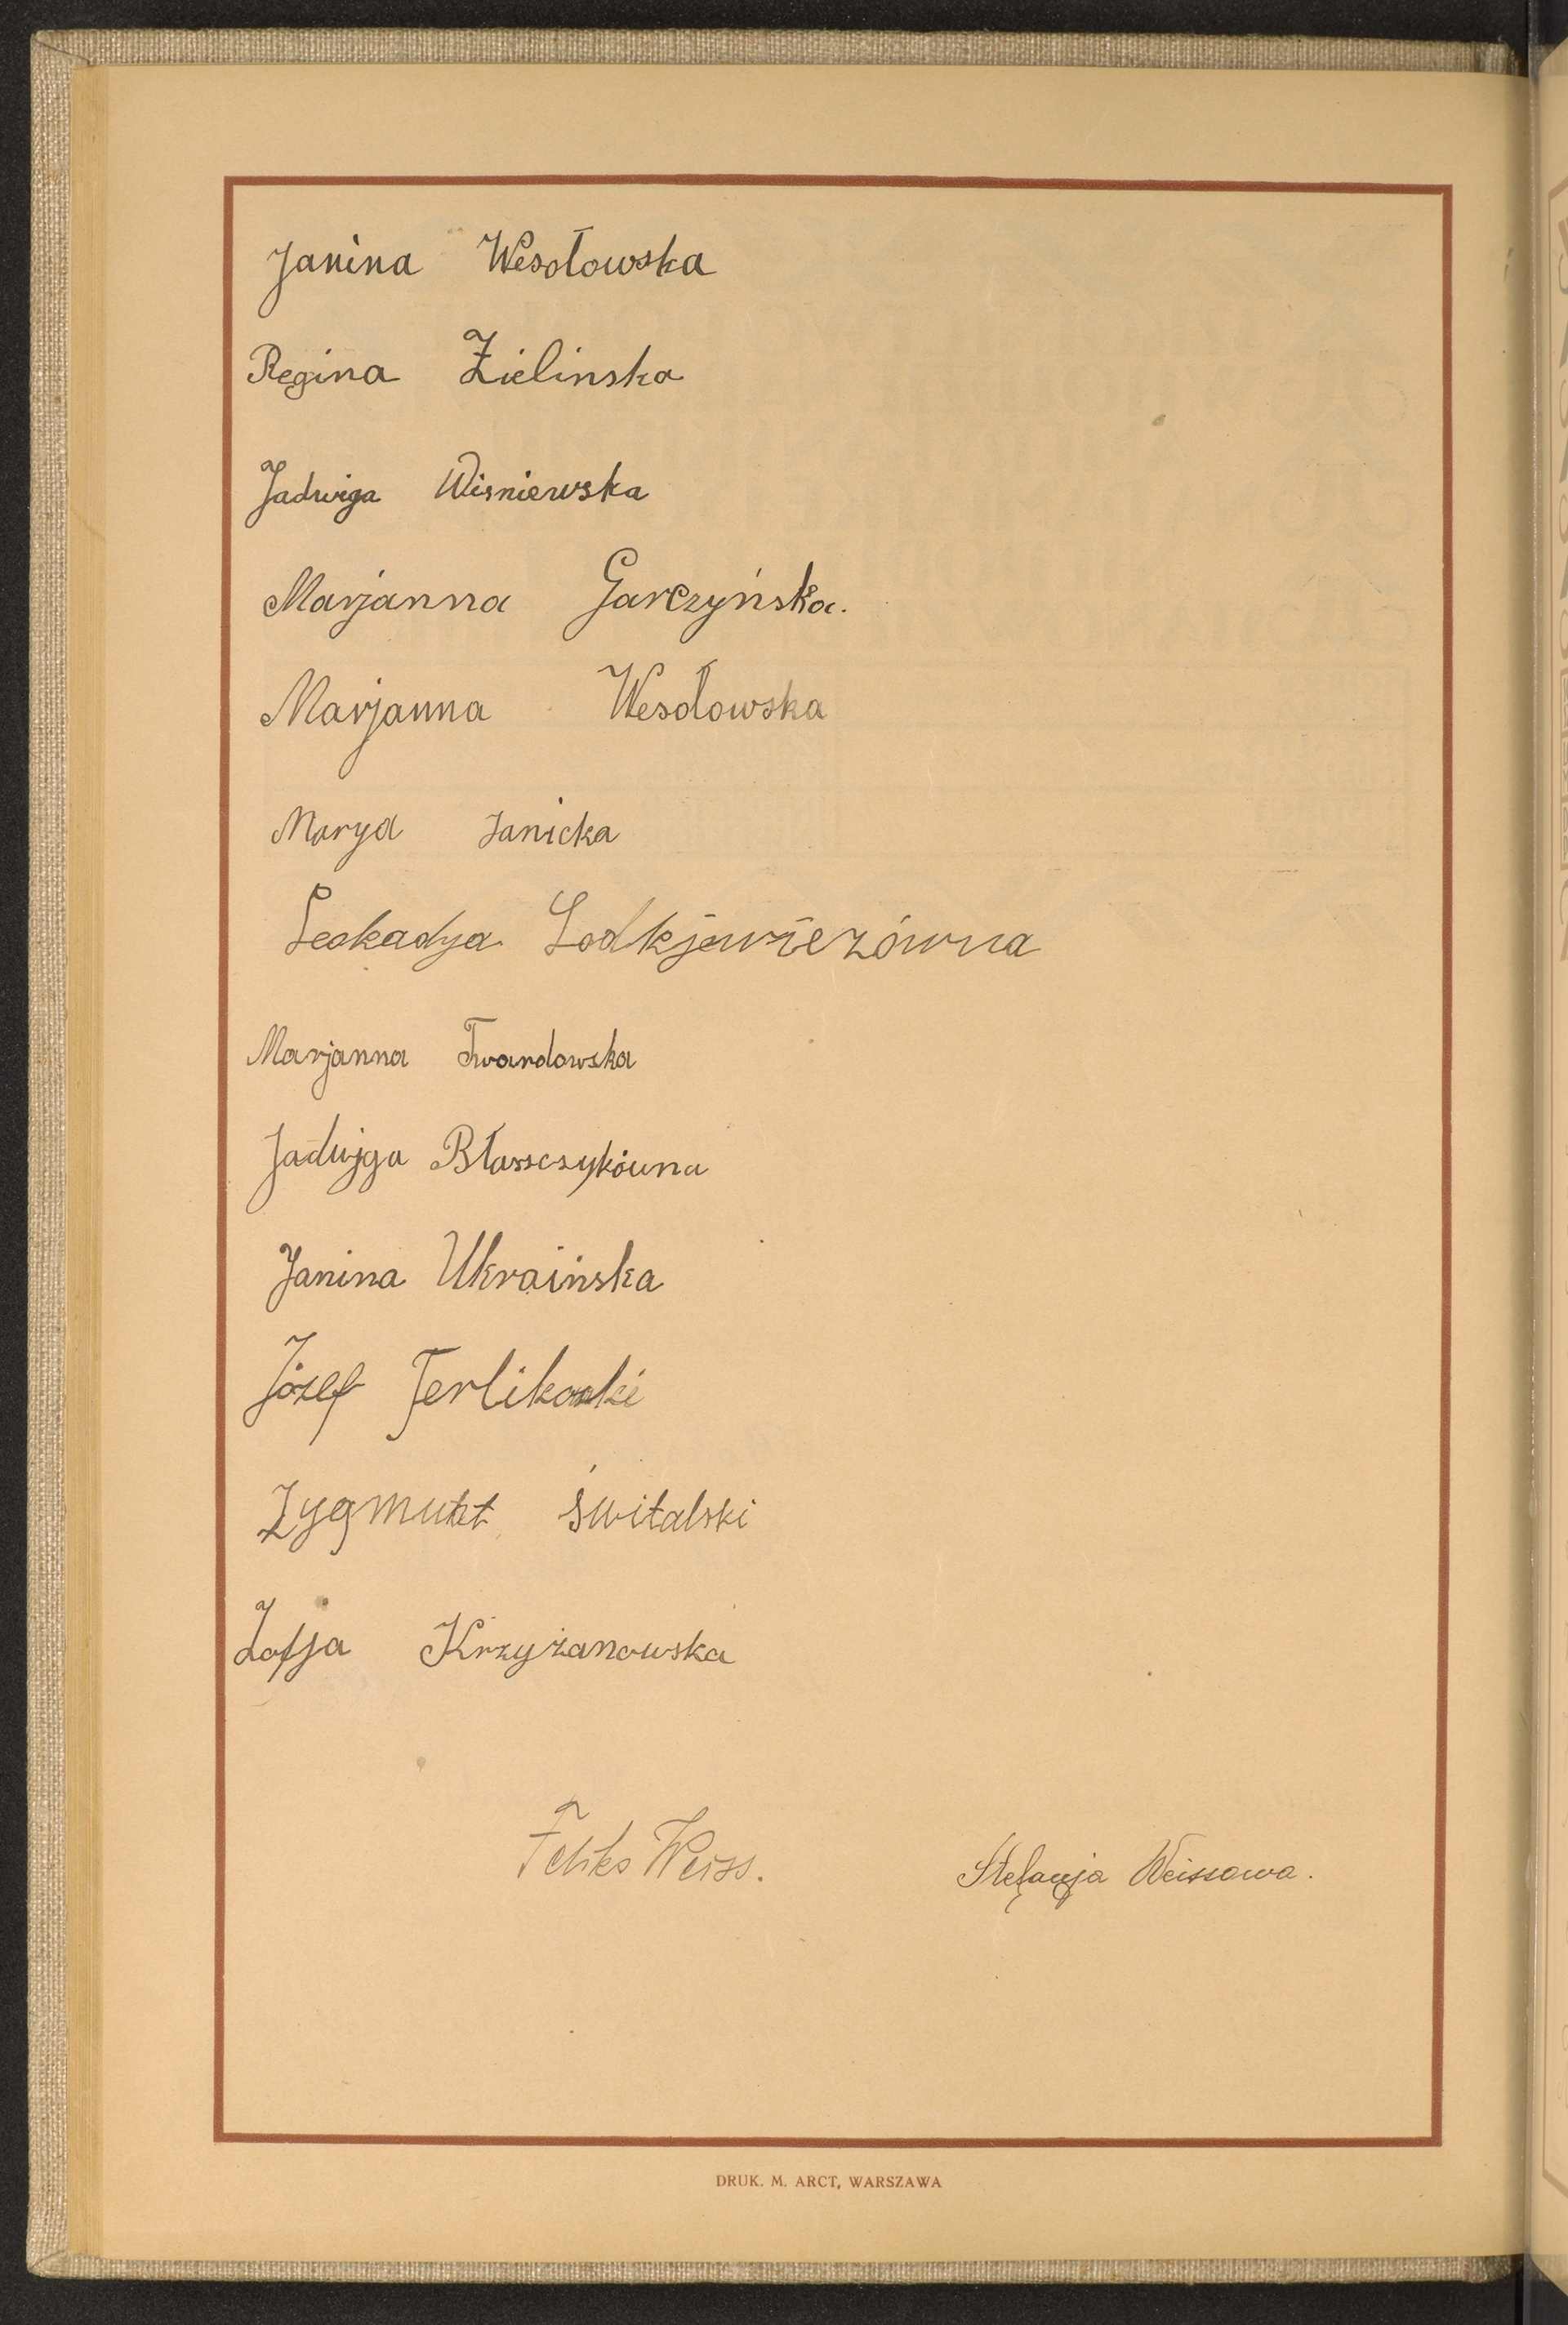 Janina Wesołowska
Regina Zielinska
Jadwiga Wisniewska
Marjanna Garczyńska.
Marjanna Wesołowska
Marya Janicka
Leokadya Lodkjewiezówna
Marjanna Twardowska
Jadwjga Błassczykówna
Janina Ukraińska
Józef Terlikowski
Zygmunt świtalski
Zofja Krzyżanowska
Feliks Weiss. Stefanja Weissowa.
DRUK. M. ARCT, WARSZAWA